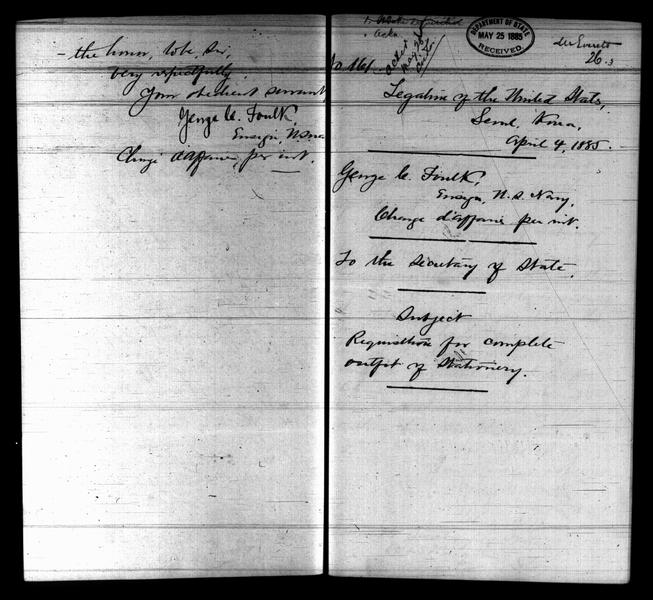 – the honor, to be Sir,
Very respectfully,
Your obedient servant
George C. Foulk,
Ensign, U.S.N.
Chargé d'affaires, per int.
DEPARTMENT OF STATE
MAY 25 1885
RECEIVED
Mr Everett
26.
No 161
Legation of the United States,
Seoul, Korea,
April 4, 1885.
George C. Foulk,
Ensign, U.S. Navy,
Chargé d'affaires per int.
To the Secretary of State.
Subject
Requisition for complete
outfit of Stationery.